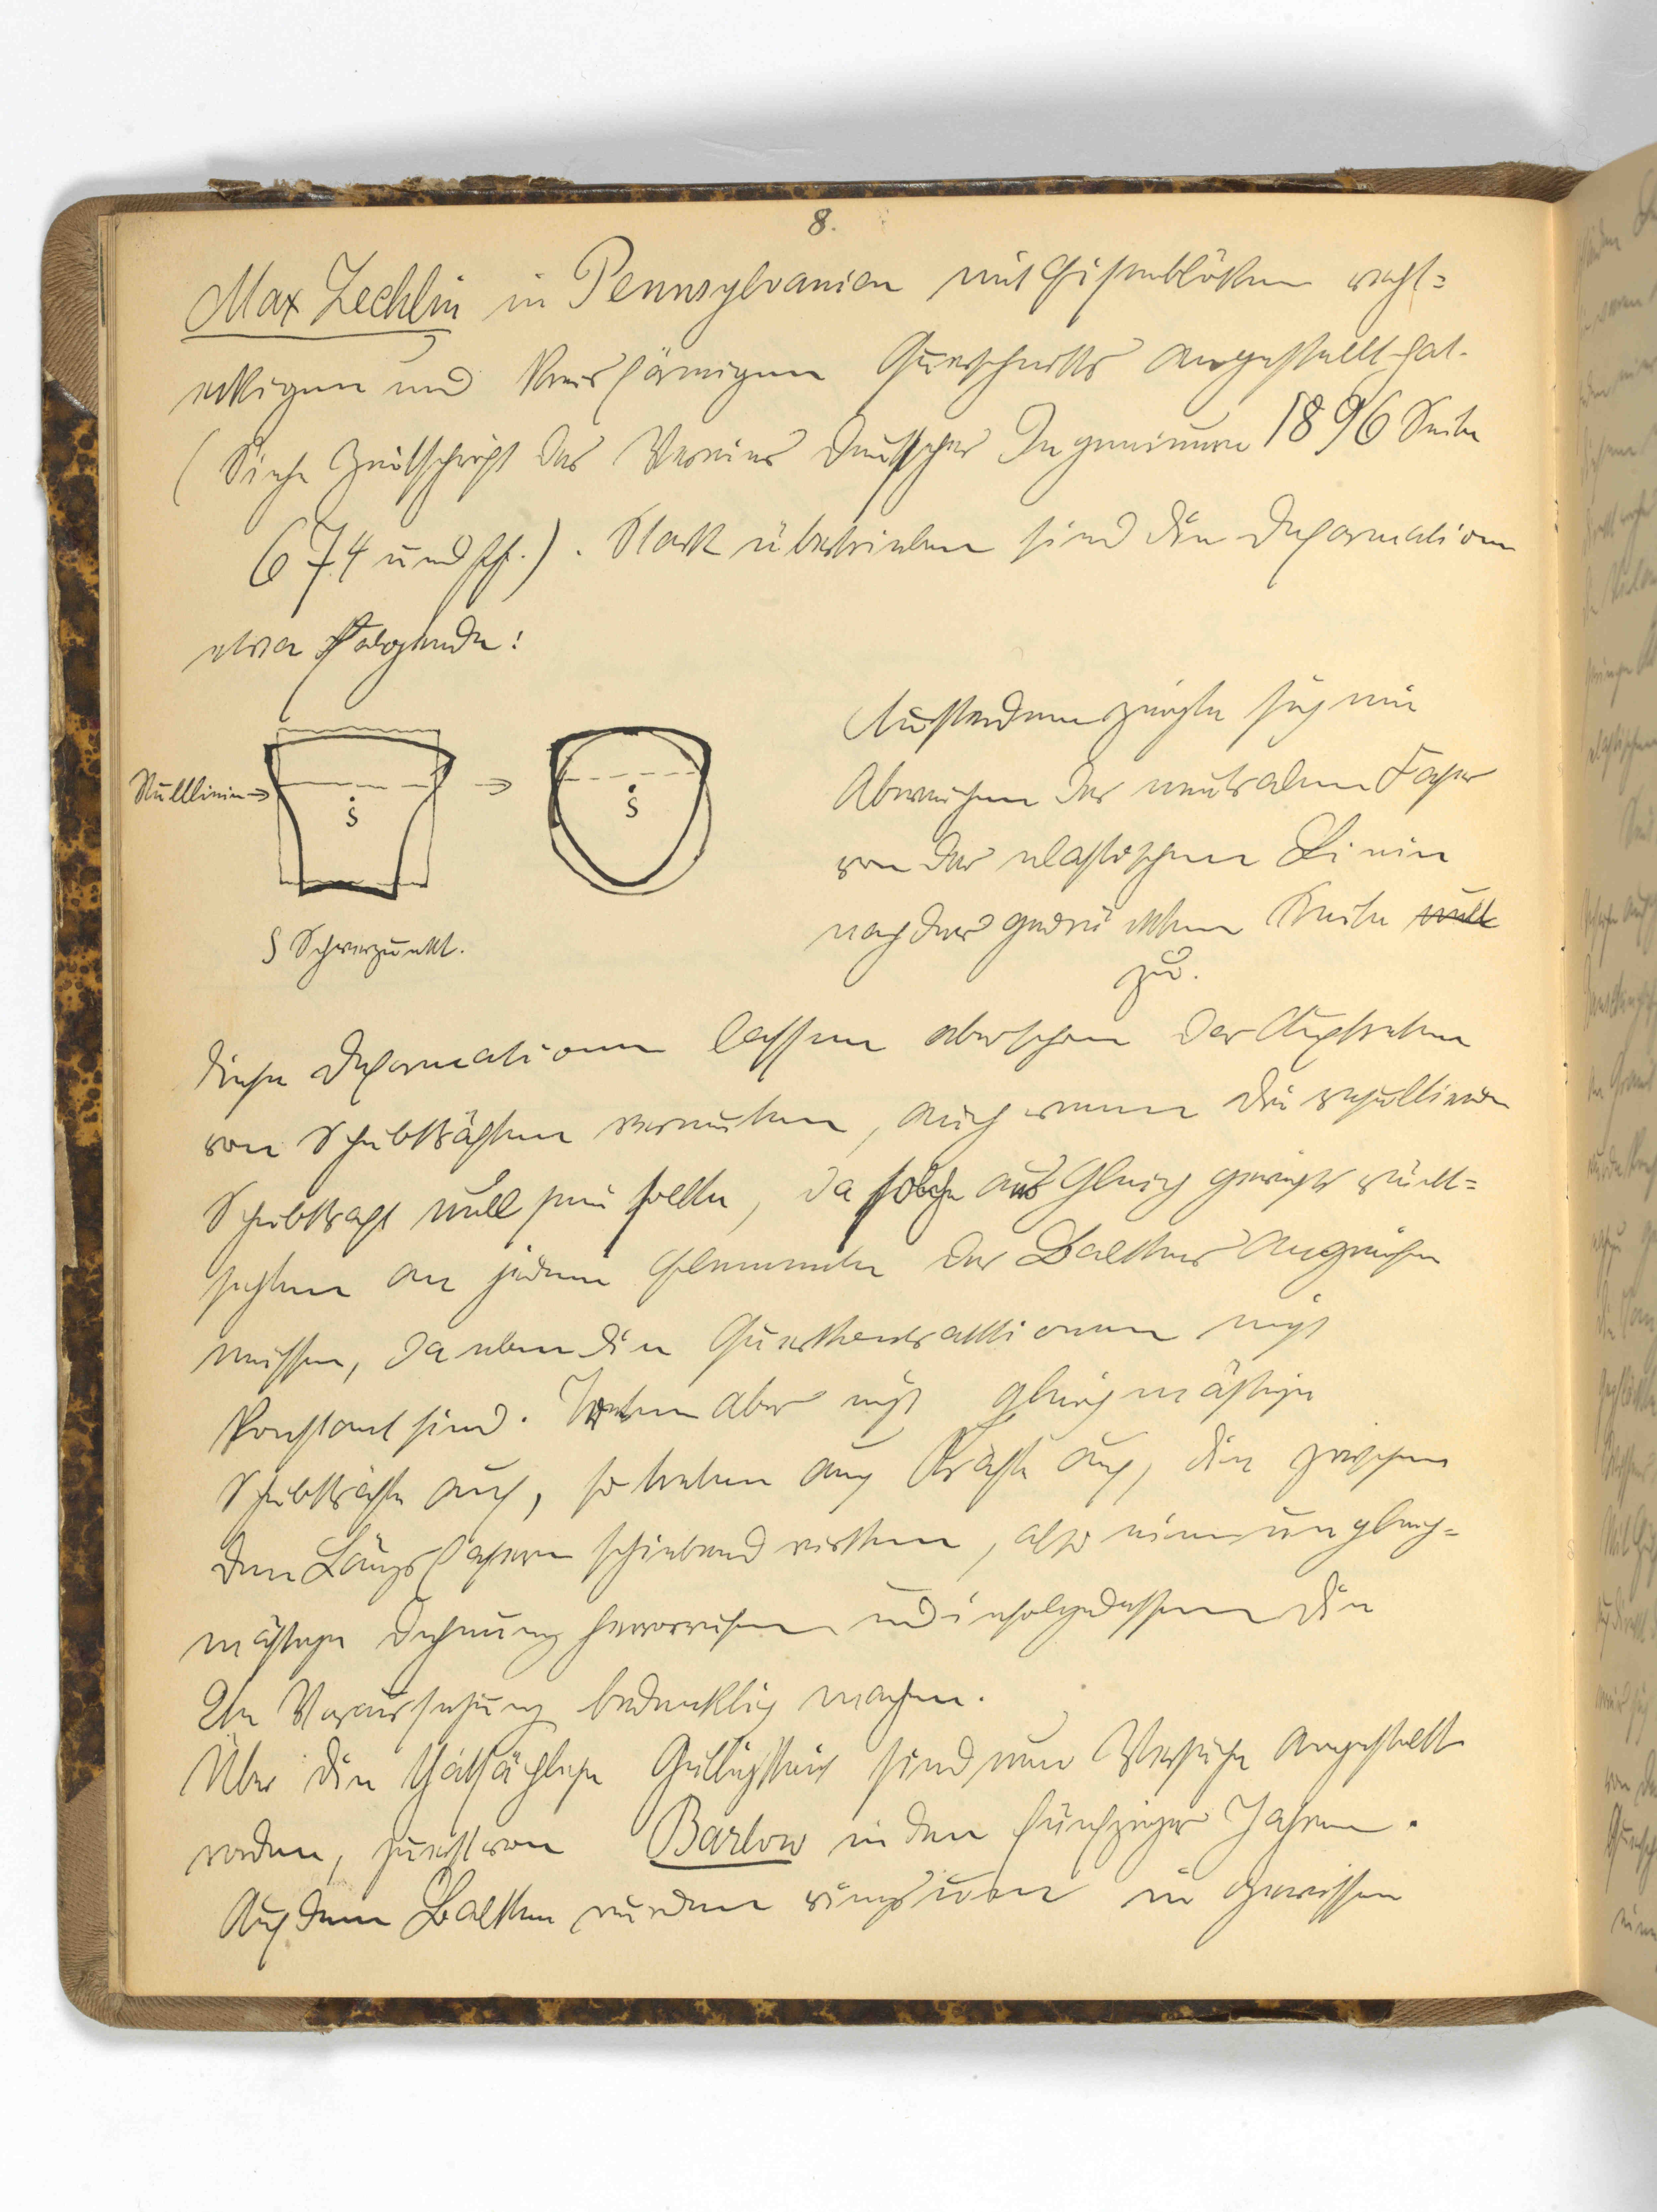 8.
Max Zechlin in Pennsylvanien mit Eisenblöcken recht=
eckigen und kreisförmigen Querschnitts angestellt hat.
(Siehe Zeitschrift des Vereines deutscher Ingenieure 1896 Seite
674 und ff.). Stark übertrieben sind die Deformationen
etwa folgende:
Ausserdem zeigte sich ein
Abweichen der neutralen Faser
von der elastischen Linie
nach der gedrückten Seite null
zu.
Nulllinie→
S
S
S Schwerpunkt.
Diese Deformationen lassen aber schon das Auftreten
von Schubkräften vermuten, auch wenn die resultierende
Schubkraft null sein sollte, da solche aus Gleichgewichtsrück=
sichten an jedem Elemente des Balkens angreifen
müssen, da eben die Querkontraktionen nicht
konstant sind. Treten aber nicht gleichmäßige
Schubkräfte auf, so treten auch Kräfte auf, die zwischen
den Längsfasern schiebend wirken, also eine ungleich=
mäßige Dehnung hervorrufen und infolgedessen die
2te Voraussetzung bedenklich machen.
Über die thatsächliche Gültigkeit sind nun Versuche angestellt
worden, zuerst von Barlow in den fünfziger Jahren.
Auf dem Balken wurden in gewissen